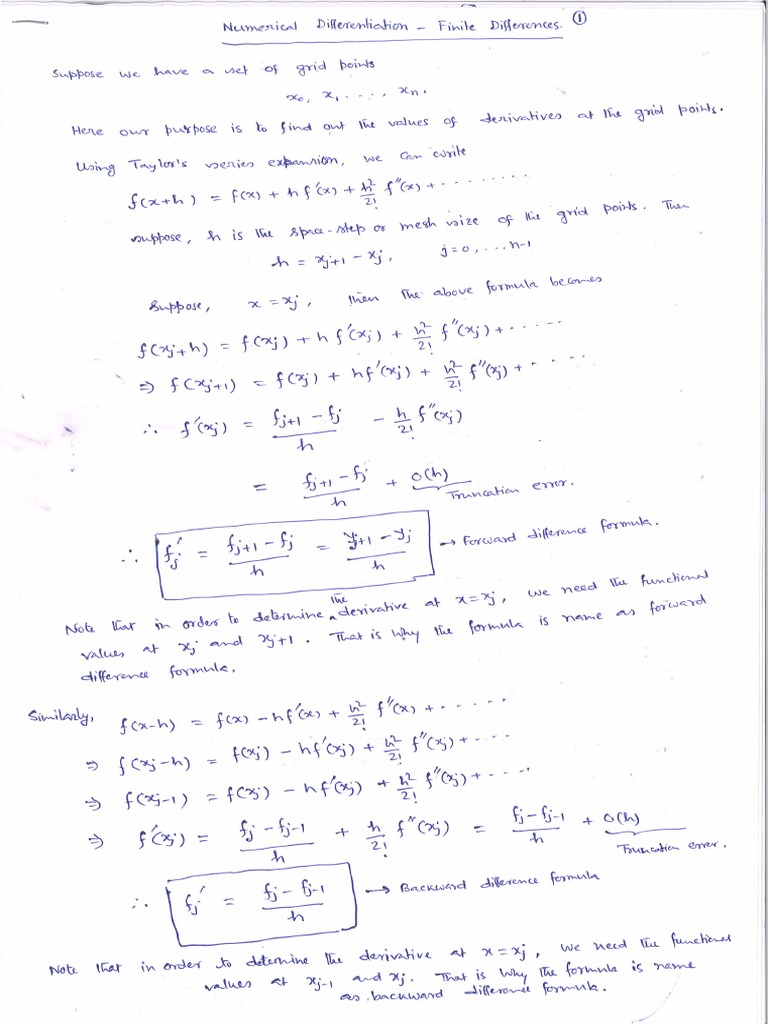 Numerical Differentiation - Finite Differences. ①
Suppose we have a set of grid points
x₀, x₁, ..., xₙ.
Here our purpose is to find out the values of derivatives at the grid points.
Using Taylor's series expansion, we can write
f(x+h) = f(x) + h f'(x) + h²/2! f''(x) + .........
suppose, h is the space-step or mesh size of the grid points. Then
h = xⱼ₊₁ - xⱼ, j=0, ...n-1
Suppose, x = xⱼ, then the above formula becomes
f(xⱼ+h) = f(xⱼ) + h f'(xⱼ) + h²/2! f''(xⱼ) + ......
⇒ f(xⱼ₊₁) = f(xⱼ) + h f'(xⱼ) + h²/2! f''(xⱼ) + ......
∴ f'(xⱼ) = (fⱼ₊₁ - fⱼ)/h - h/2! f''(xⱼ)
= (fⱼ₊₁ - fⱼ)/h + O(h) Truncation error.
∴ fⱼ' = (fⱼ₊₁ - fⱼ)/h = (yⱼ₊₁ - yⱼ)/h → Forward difference formula.
Note that in order to determine the derivative at x=xⱼ, we need the functional
values at xⱼ and xⱼ₊₁. That is why the formula is name as forward
difference formula.
Similarly, f(x-h) = f(x) - h f'(x) + h²/2! f''(x) + ......
⇒ f(xⱼ-h) = f(xⱼ) - h f'(xⱼ) + h²/2! f''(xⱼ) + ....
⇒ f(xⱼ₋₁) = f(xⱼ) - h f'(xⱼ) + h²/2! f''(xⱼ) + ....
⇒ f'(xⱼ) = (fⱼ - fⱼ₋₁)/h + h/2! f''(xⱼ) = (fⱼ - fⱼ₋₁)/h + O(h) Truncation error.
∴ fⱼ' = (fⱼ - fⱼ₋₁)/h → Backward difference formula
Note that in order to determine the derivative at x=xⱼ, we need the functional
values at xⱼ₋₁ and xⱼ. That is why the formula is name
as backward difference formula.